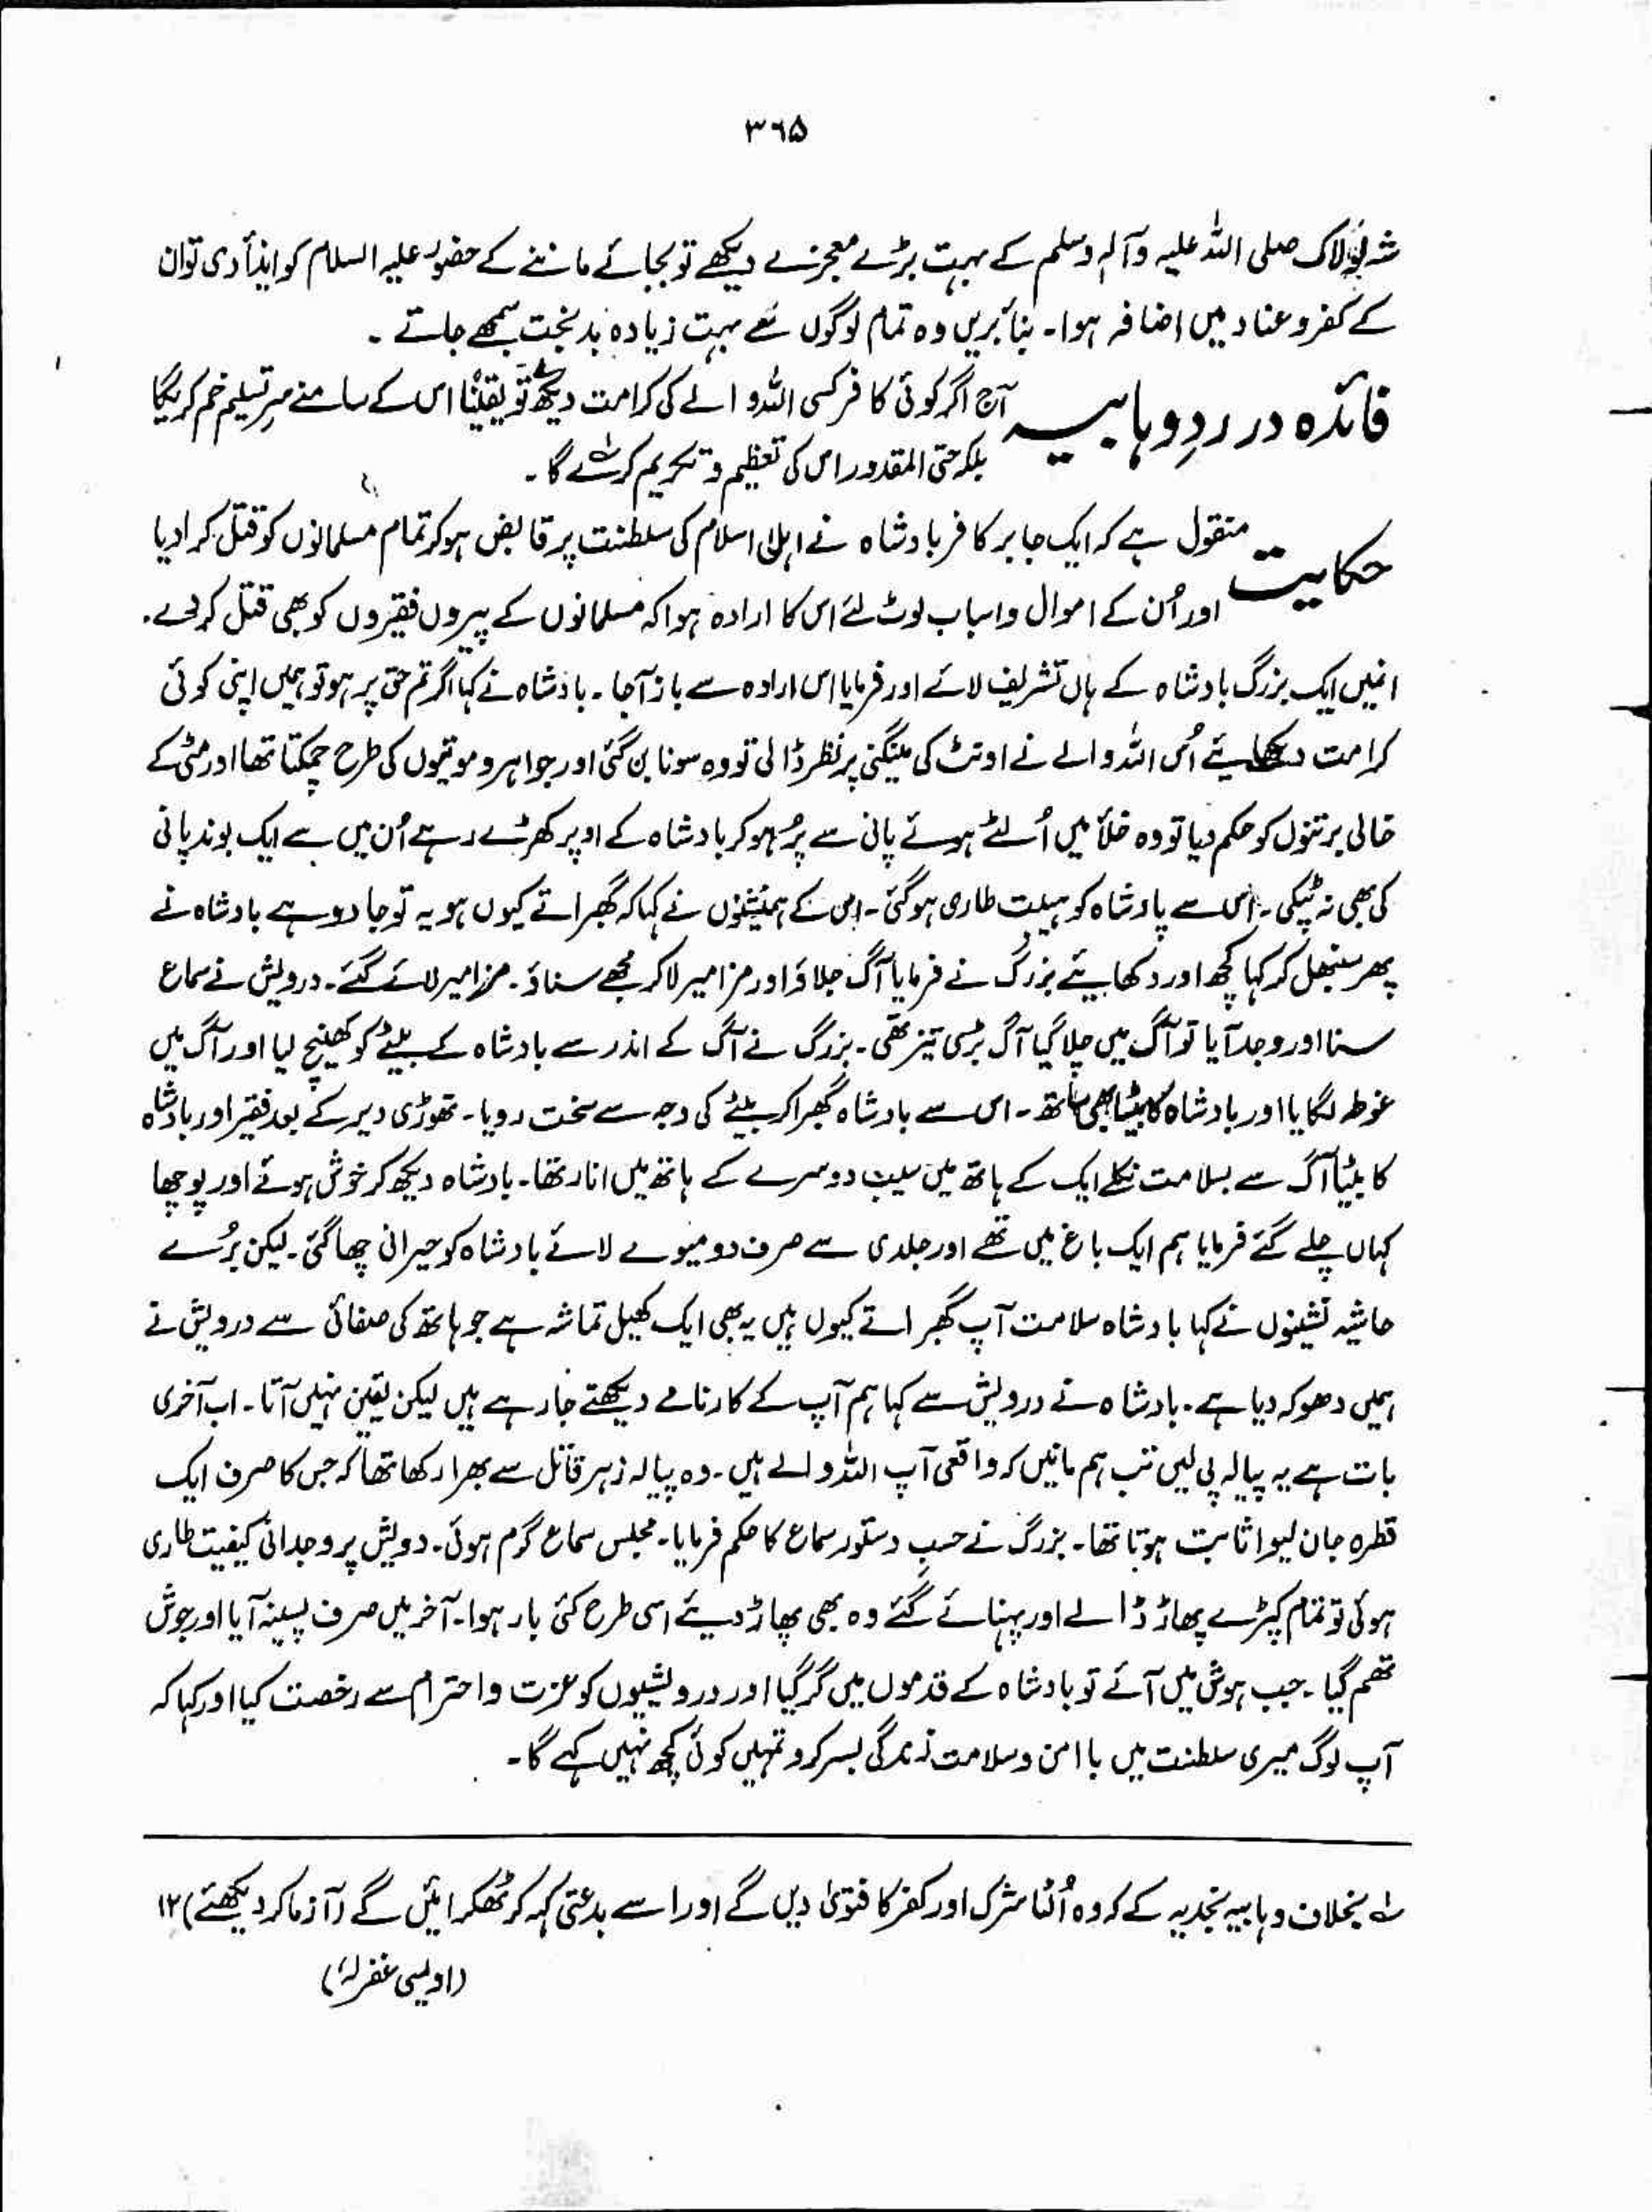 ۳۶۵
شہِ لولاک صلی اللہ علیہ وآلہٖ وسلم کے بہت بڑے معجزے دیکھے تو بجائے ماننے کے حضور علیہ السلام کو ایذأ دی تو ان
کے کفر و عناد میں اضافہ ہوا۔ بنأ بریں وہ تمام لوگوں سے بہت زیادہ بدبخت سمجھے جاتے ۔
فائدہ در ردِ وہابیہ آج اگر کوئی کافر کسی اللہ والے کی کرامت دیکھے تو یقیناً اس کے سامنے سرِ تسلیم خم کریگا
بلکہ حتی المقدور اس کی تعظیم و تکریم کرے گا ۔
حکایت منقول ہے کہ ایک جابر کافر بادشاہ نے اہلِ اسلام کی سلطنت پر قابض ہو کر تمام مسلمانوں کو قتل کرا دیا
اور اُن کے اموال واسباب لوٹ لئے اس کا ارادہ ہوا کہ مسلمانوں کے پیروں فقیروں کو بھی قتل کر دے.
انہیں ایک بزرگ بادشاہ کے ہاں تشریف لائے اور فرمایا اس ارادہ سے باز آجا ۔ بادشاہ نے کہا اگر تم حق پر ہو تو ہمیں اپنی کوئی
کرامت دکھایئے اُس اللہ والے نے اونٹ کی مینگنی پر نظر ڈالی تو وہ سونا بن گئی اور جواہر و موتیوں کی طرح چمکتا تھا اور مٹی کے
خالی برتنوں کو حکم دیا تو وہ خلأ میں اُلٹے ہوئے پانی سے پُر ہو کر بادشاہ کے اوپر کھڑے رہے اُن میں سے ایک بوند پانی
کی بھی نہ ٹپکی ۔ اس سے پادشاہ کو ہیبت طاری ہو گئی ۔ اس کے ہمنشینوں نے کہا کہ گھبراتے کیوں ہو یہ تو جادو ہے بادشاہ نے
پھر سنبھل کر کہا کچھ اور دکھایئے بزرگ نے فرمایا آگ جلاؤ اور مزامیر لا کر مجھے سناؤ ۔ مزامیر لائے گئے ۔ درویش نے سماع
سنا اور وجد آیا تو آگ میں چلا گیا آگ بڑی تیز تھی ۔ بزرگ نے آگ کے اندر سے بادشاہ کے بیٹے کو کھینچ لیا اور آگ میں
غوطہ لگایا اور بادشاہ کا بیٹا بھی ساتھ ۔ اس سے بادشاہ گھبرا کر بیٹے کی وجہ سے سخت رویا ۔ تھوڑی دیر کے بعد فقیر اور بادشاہ
کا بیٹا آگ سے بسلامت نکلے ایک کے ہاتھ میں سیب دوسرے کے ہاتھ میں انار تھا ۔ بادشاہ دیکھ کر خوش ہوئے اور پوچھا
کہاں چلے گئے فرمایا ہم ایک باغ میں تھے اور جلدی سے صرف دو میوے لائے بادشاہ کو حیرانی چھا گئی ۔ لیکن بُرے
حاشیہ نشینوں نے کہا بادشاہ سلامت آپ گھبراتے کیوں ہیں یہ بھی ایک کھیل تماشہ ہے جو ہاتھ کی صفائی سے درویش نے
ہمیں دھوکہ دیا ہے ۔ بادشاہ نے درویش سے کہا ہم آپ کے کارنامے دیکھتے جا رہے ہیں لیکن یقین نہیں آتا ۔ اب آخری
بات ہے یہ پیالہ پی لیں تب ہم مانیں کہ واقعی آپ اللہ والے ہیں ۔ وہ پیالہ زہر قاتل سے بھرا رکھا تھا کہ جس کا صرف ایک
قطرہ جان لیوا ثابت ہوتا تھا ۔ بزرگ نے حسبِ دستور سماع کا حکم فرمایا ۔ مجلس سماع گرم ہوئی ۔ دویش پر وجدانی کیفیت طاری
ہوئی تو تمام کپڑے پھاڑ ڈالے اور پہنائے گئے وہ بھی پھاڑ دیئے اسی طرح کئی بار ہوا ۔ آخر میں صرف پسینہ آیا اور جوش
تھم گیا ۔ جب ہوش میں آئے تو بادشاہ کے قدموں میں گر گیا اور درویشیوں کو عزت و احترام سے رخصت کیا اور کہا کہ
آپ لوگ میری سلطنت میں با امن و سلامت زندگی بسر کرو تمہیں کوئی کچھ نہیں کہے گا ۔
لہ بخلاف وہابیہ نجدیہ کے کہ وہ اُلٹا شرک اور کفر کا فتویٰ دیں گے اور اسے بدعتی کہہ کر ٹھکرائیں گے (آزما کر دیکھئے) ۱۲
(اویسی غفرلہٗ)